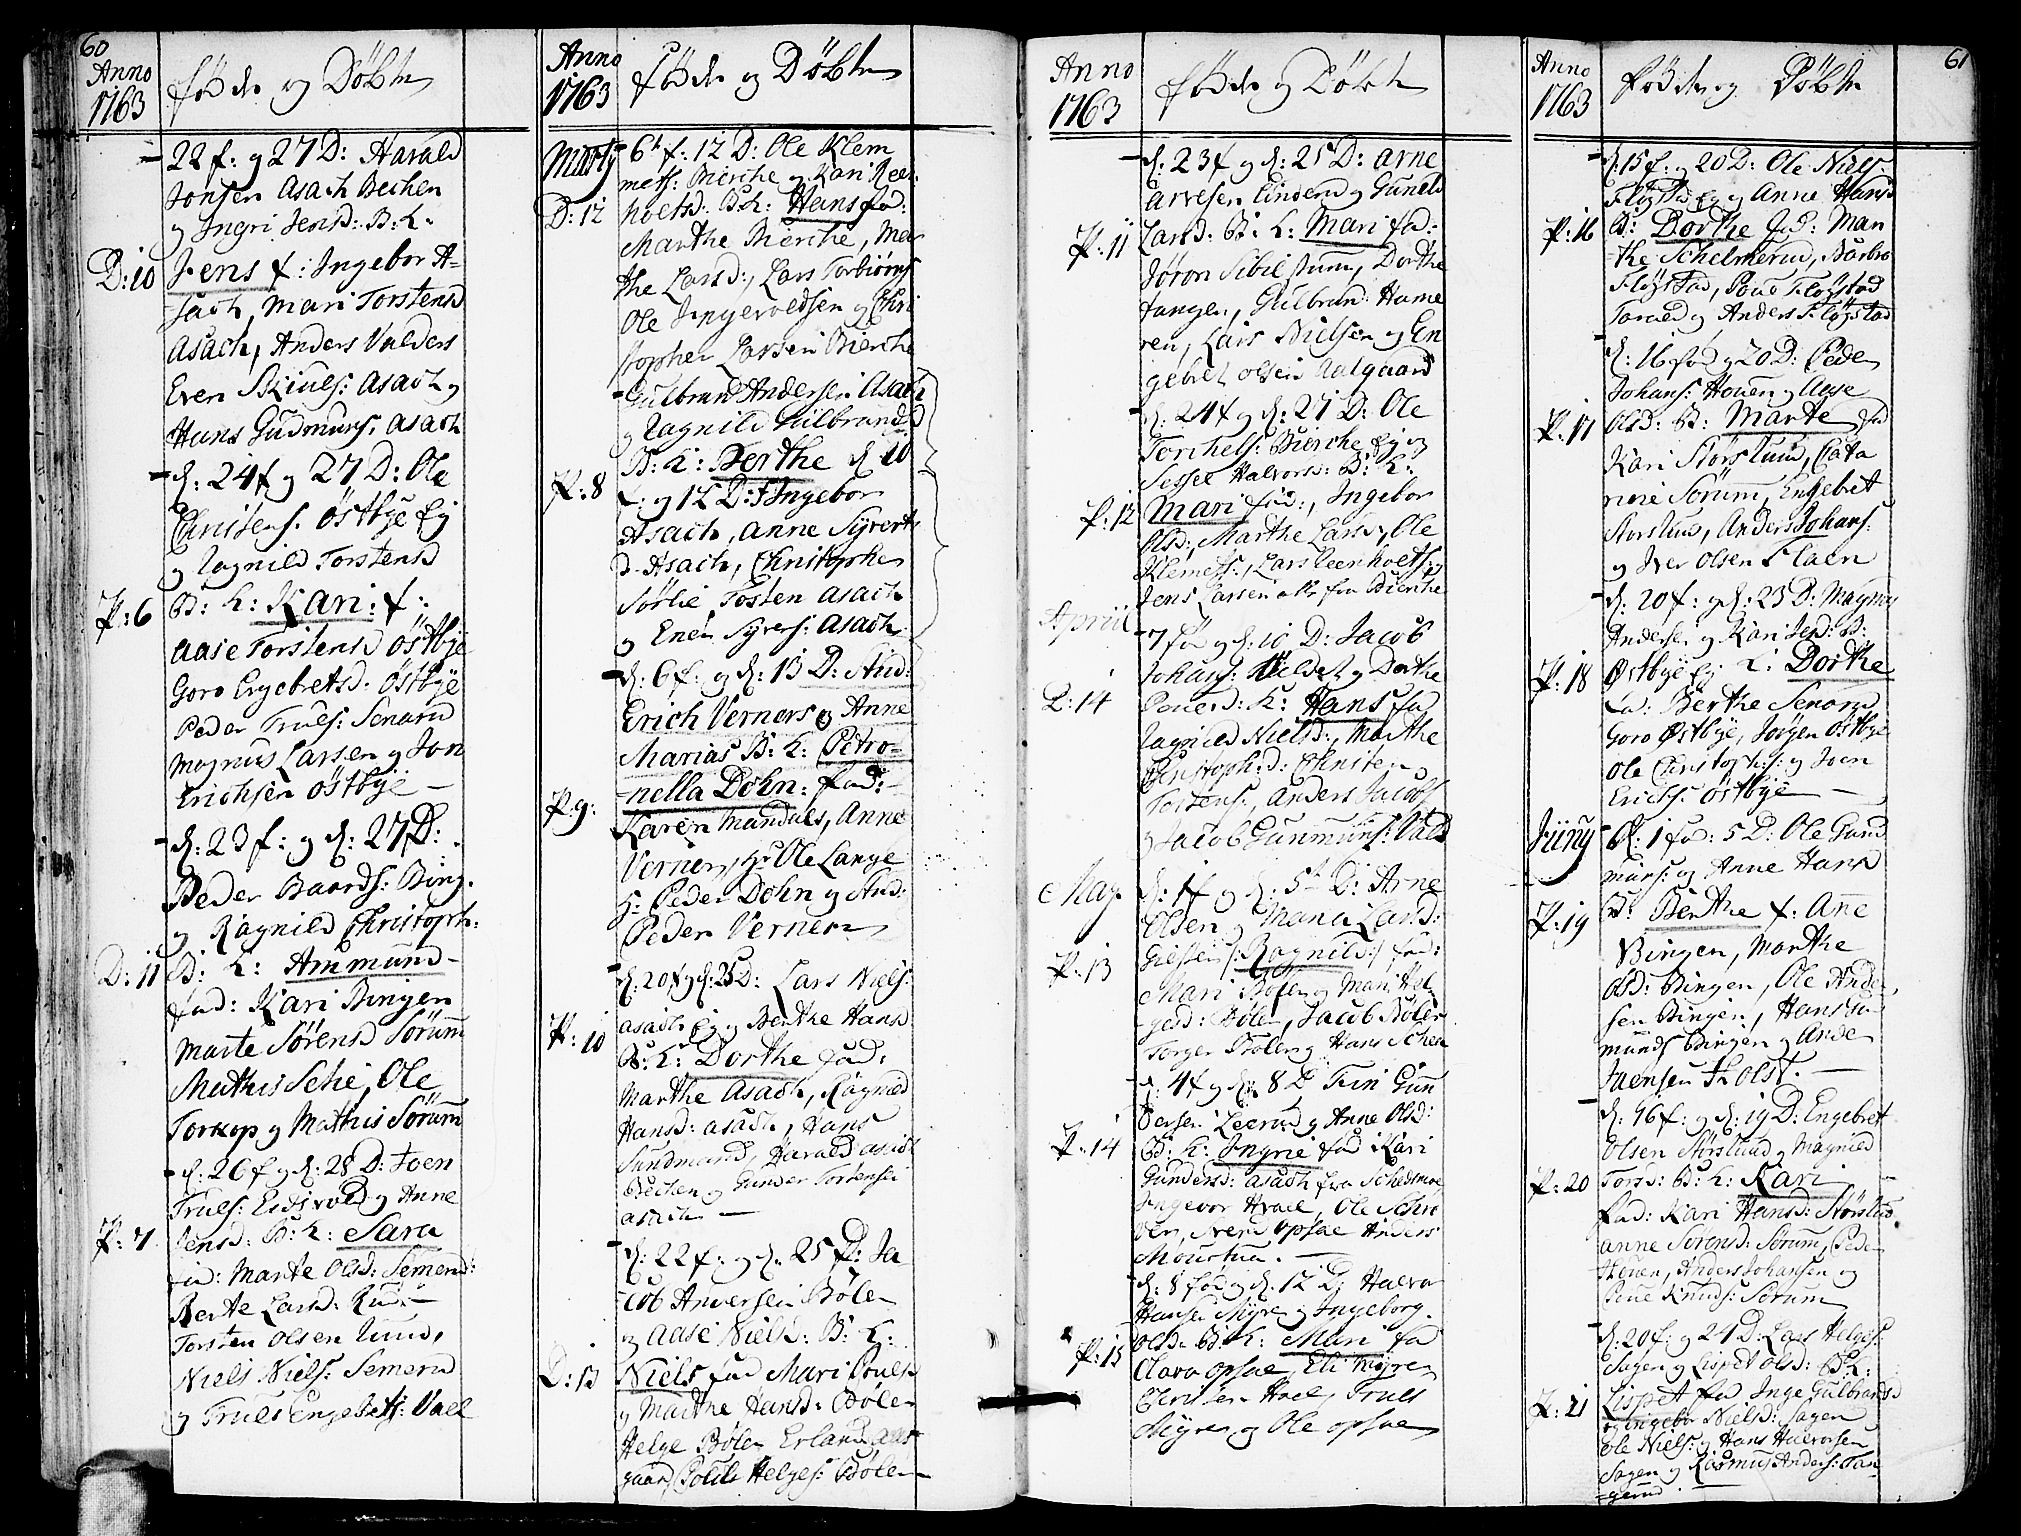 60
Anno
1763
føde og Døbte
22 f: og 27 D: Harald
Jonsen Asach Bechen
og Ingri Jensd: B: K:
D: 10
Jens f: Ingebor A-
sach, Mari Torstensd
Asach, Anders Valders
Even Skiuls: Asach og
Hans Gudmuns: Asach
d: 24 f og 27 D: Ole
Christens: Østbye Ej
og Ragnild Torstensd
P: 6
B: K: Kari: f:
Aase Torstensd Østbye
Goro Engebretsd: Østbye
Peder Truls: Senerud
Mognus Larsen og Jon
Erichsen Østbye
d: 23 f: og d: 27 D:
Peder Baards: Bing.
og Ragnild Christoph:
D: 11
B: K: Ammund
fad: Kari Bingen
Marte Sørensd Sørum
Mathis Schie, Ole
Torkop og Mathis Sørum
d: 26 f og d: 28 D: Joen
Truls: Eidsvold og Anne
P: 7
Jensd: B: K: Sara
fad: Marte Olsd: Semerud:
Berte Larsd: Rud:
Torsten Olsen Lund,
Niels Niels: Semerud
og Truls Engebrets: Vael
Anno
1763
føde og Døbte
Marty
6t f: 12 D: Ole Klem
mets: Bierche og Kari Reer
D: 12
holtsd: B: K: Hans fad:
Marthe Bierche, Mar
the Larsd:, Lars Torbiørns
Ole Ingevoldsen og Chri
stopher Larsen Bierche
Gulbran Andersen Asach
og Ragnild Gulbrandsd
P: 8
B: K: Berthe d 10
f: og 12 D: f Ingebor
Asach, Anne Syverts
d Asach, Christopher
Sørlie, Tosten Asach
og Enen Syvers: Asach
d: 6 f: og d: 13 D: And:
Erich Verners og Anne
Marias B: K: Petro-
P: 9:
nella Dohn: fad:
Karen Mandals, Anne
Verner, Hr Ole Lange
Hr Peder Dohn og And:
Peder Verner
d: 20 f og d: 25 D: Lars Niels:
Asach Ej og Berthe Hansd
P: 10
B: K: Dorthe fad:
Marthe Asach, Ragnild
Hansd: Asach, Hans
Sundmand, Harald Asach
Bechen og Gunder Torstensen
Asach
d: 22 f: og d: 25 D: Ja
cob Andersen Bølen
og Aase Nielsd: B: K:
D: 13
Niels fad Mari Poulsd
og Marthe Hansd: Bølen
Helge Bølen Erland Aas
gaar, Poul Helges: Bølen
Anno
1763
føde og Døbte
d: 23 f og d: 25 D: Arne
Arvesen Linderud og Gunild
P: 11
Larsd: B: K: Mari fad:
Jøron Sibilstuen, Dorthe
tangen, Gulbrand Hame
ren, Lars Nielsen og En
gebret olsen Aalgaard
d: 24 f og d: 27 D: Ole
Torchels: Bierche Ej og
Sessel Halvorsd: B: K:
P: 12
Mari fad:, Ingebor
Olsd:, Marthe Larsd, Ole
Klemets:, Lars Reerholts: og
Jens Larsen alle fra Bierche
Apriil
7 fød og d: 10 D: Jacob
Johans: og Dorthe
D: 14
Pouelsd: K: Hans fad
Ragnild Nielsd:, Marthe
Christophd: Christen
Torstens:, Anders Jacobs
og Jacob Gunmuns: Vald
May
d: 1 f og d: 5t D: Arne
Olsen og Maria Larsd:
P: 13
Gielsten /: Ragnild :/ fad:
Mari Bølen og Mari Hel
gesd: Bølen, Jacob Bølen
Torger Bølen og Hans Schen
d: 4 f og d: 8 D Fin Gun
dersen Leerud og Anne Olsd:
P: 14
B: K: Ingrie fad Kari
Gundersd: Asach fra Schedsmoe
Ingebor Hvael, Ole Schri
ver, Svend Opsae Anders
Moustua.
d: 8 fød og d: 12 D: Halvor
Hansen Myre og Ingeborg
P: 15
Olsd: B: K: Mari fad
Clara Opsae, Eli Myren
Christen Hvael, Truls
Myren og Ole Opsae
61
Anno
1763
Fødde og Døbte
d: 15 f: og 20 D: Ole Niels
Fløgstad Ej og Anne Hansd
P: 16
B: Dorthe fad: Mar
the Schelmerud, Barbro
Fløgstad, Poul Fløgstad
Torval og Anders Fløgstad
d: 16 fød og 20 D: Peder
Johans: Houen og Aase
P: 17
Olsd: B: Marte fad
Kari Størslund, Cata
rine Sørum, Engebret
Størslund, Anders Johans:
og Iver Olsen Flaen
d: 20 f: og d: 23 D: Magnus
Andersen og Kari Jensd: B:
P: 18
Østbye Ej K: Dorthe
fad: Berthe Senerud
Goro Østbye, Jørgen Østbye
Ole Christophs: og Joen
Erichs: Østbye
Juny
d: 1 fød: 5 D: Ole Gund
muns: og Anne Hansd
P: 19
B: Berthe f: Ane
Bingen, Marthe
Olsd: Bingen, Ole Ander
sen Bingen, Hans Gu
munds Bingen og Ander
Jaensen Tholst.
d: 16 f: og d: 19 D: Engebret
Olsen Størslund og Magnild
P: 20
Torsd: B: K: Kari
fad: Kari Hansd: Størslund
Anne Sørensd: Sørum, Peder
Houen, Anders Johansen og
Poul Knuds: Sørum
d: 20 f: og 24 D: Lars Helges:
Sagen og Lispet Olsd: B: K:
P: 21
Lispet fad Inge Gulbrandsd
og Ingebor Nielsd: Sagen
Ole Niels: og Hans Halvorsen
Sagen og Rasmus Anders: Tan-
gerud.